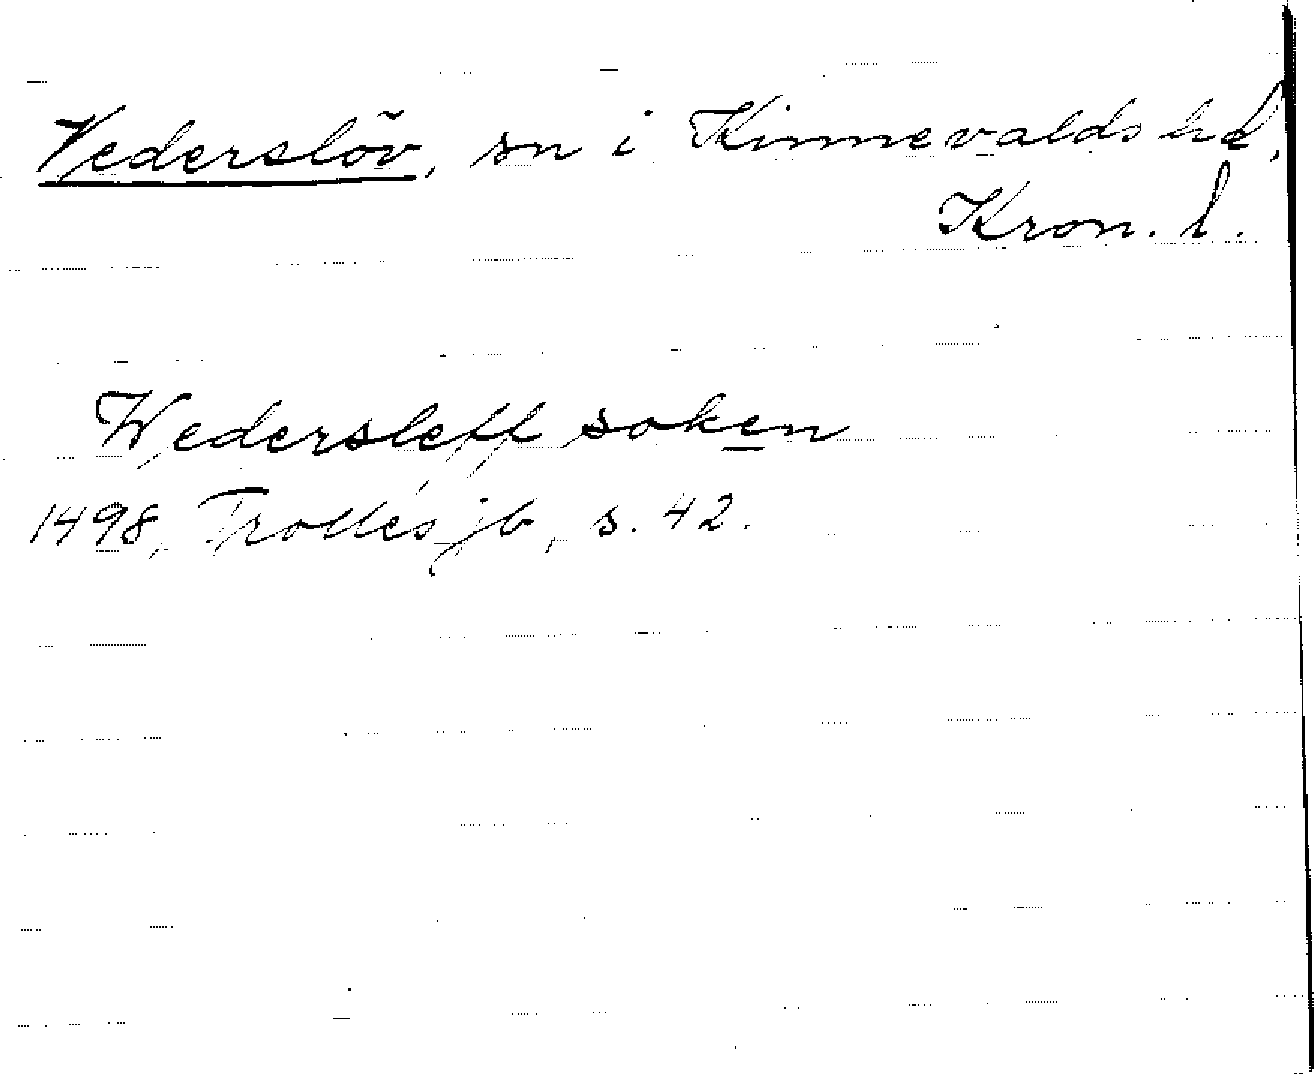 Vederslöv, sn i Kinnevalds hd,
Kron. l.
Wedersleff soken
1498, Trolles jb, s. 42.